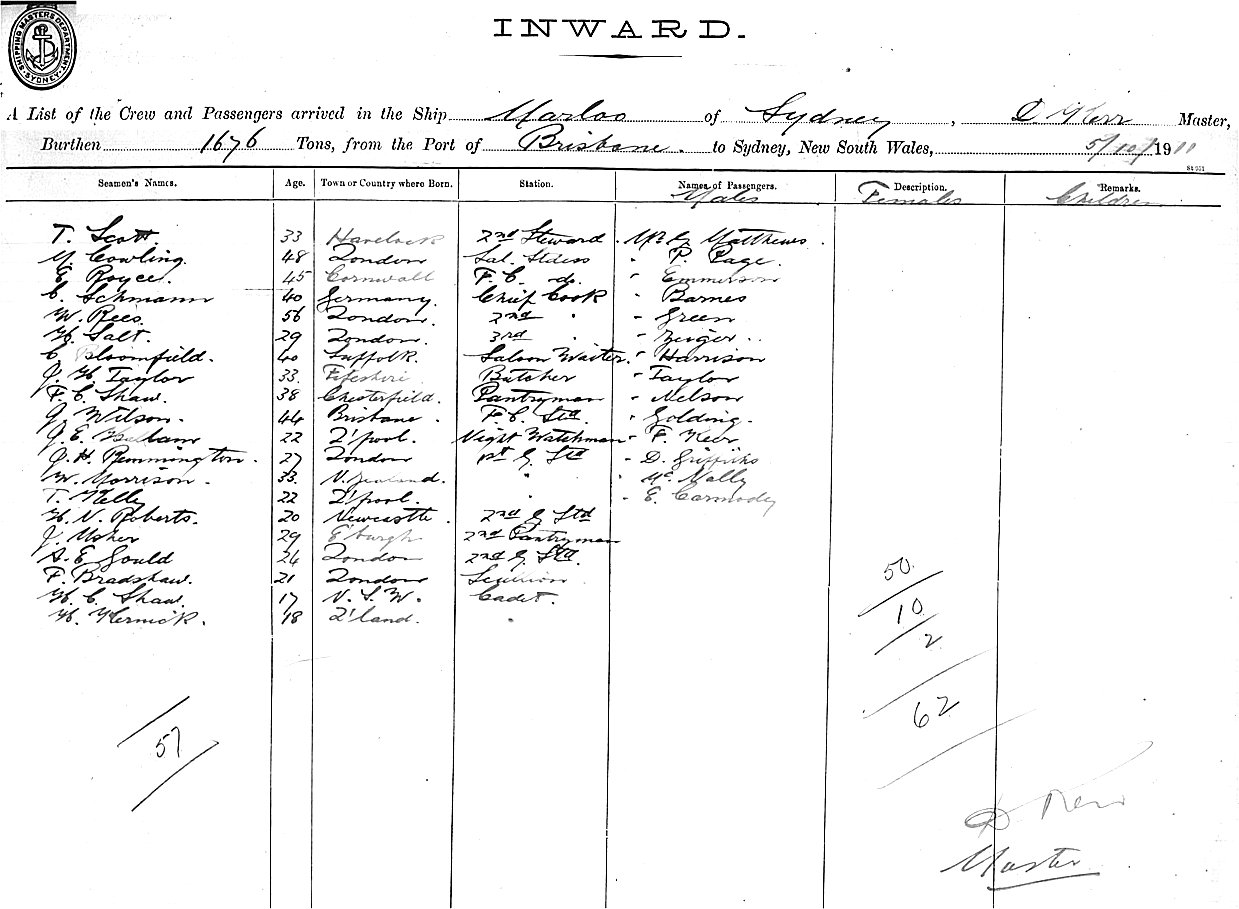 SHIPPING MASTERS DEPARTMENT. SYDNEY
INWARD.
A List of the Crew and Passengers arrived in the Ship Marloo of Sydney, D Kerr Master,
Burthen 1676 Tons, from the Port of Brisbane. to Sydney, New South Wales, 5/10/1911
Seamen's Names. Age. Town or Country where Born. Station. Names of Passengers. Description. Remarks.
Males Females Children
T. Scott. 33 Havelock 2nd Steward. Mr G Matthews.
Cowling. 48 London Sal. Stdess " P. Page.
E Royce. 45 Cornwall F. C. do. " Emmerson
C. Schmann 40 Germany. Chief Cook " Barnes
W. Rees. 56 London. 2nd " " Green
H. Salt. 29 London. 3rd " "
C Bloomfield. 40 Suffolk. Saloon Waiter. " Harrison
J. H Taylor 33. Fifeshire. Butcher " Taylor
F. C. Shaw. 38 Chesterfield. Pantryman " Nelson
J Wilson. 44 Brisbane. F. C. Std. " Golding.
J. E. 22 L'pool. Night Watchman " F. Kerr
J. H. Remmington. 27 London 1st G. Std " D. Griffiths
W. Morrison. 33. N. Zealand. " " McNally
T. Kelly 22 L'pool. " " E. Carmody
H. N. Roberts. 20 Newcastle. 2nd G Std
J. Usher 29 E'burgh 2nd Pantryman
A. E Gould 24 London 2nd G. Std.
F. Bradshaw. 21 London Scullion.
H. C. Shaw. 17 N. S. W. Cadet.
H. Kernick. 18 Q'land. "
50
10
2
62
57
D Kerr
Master